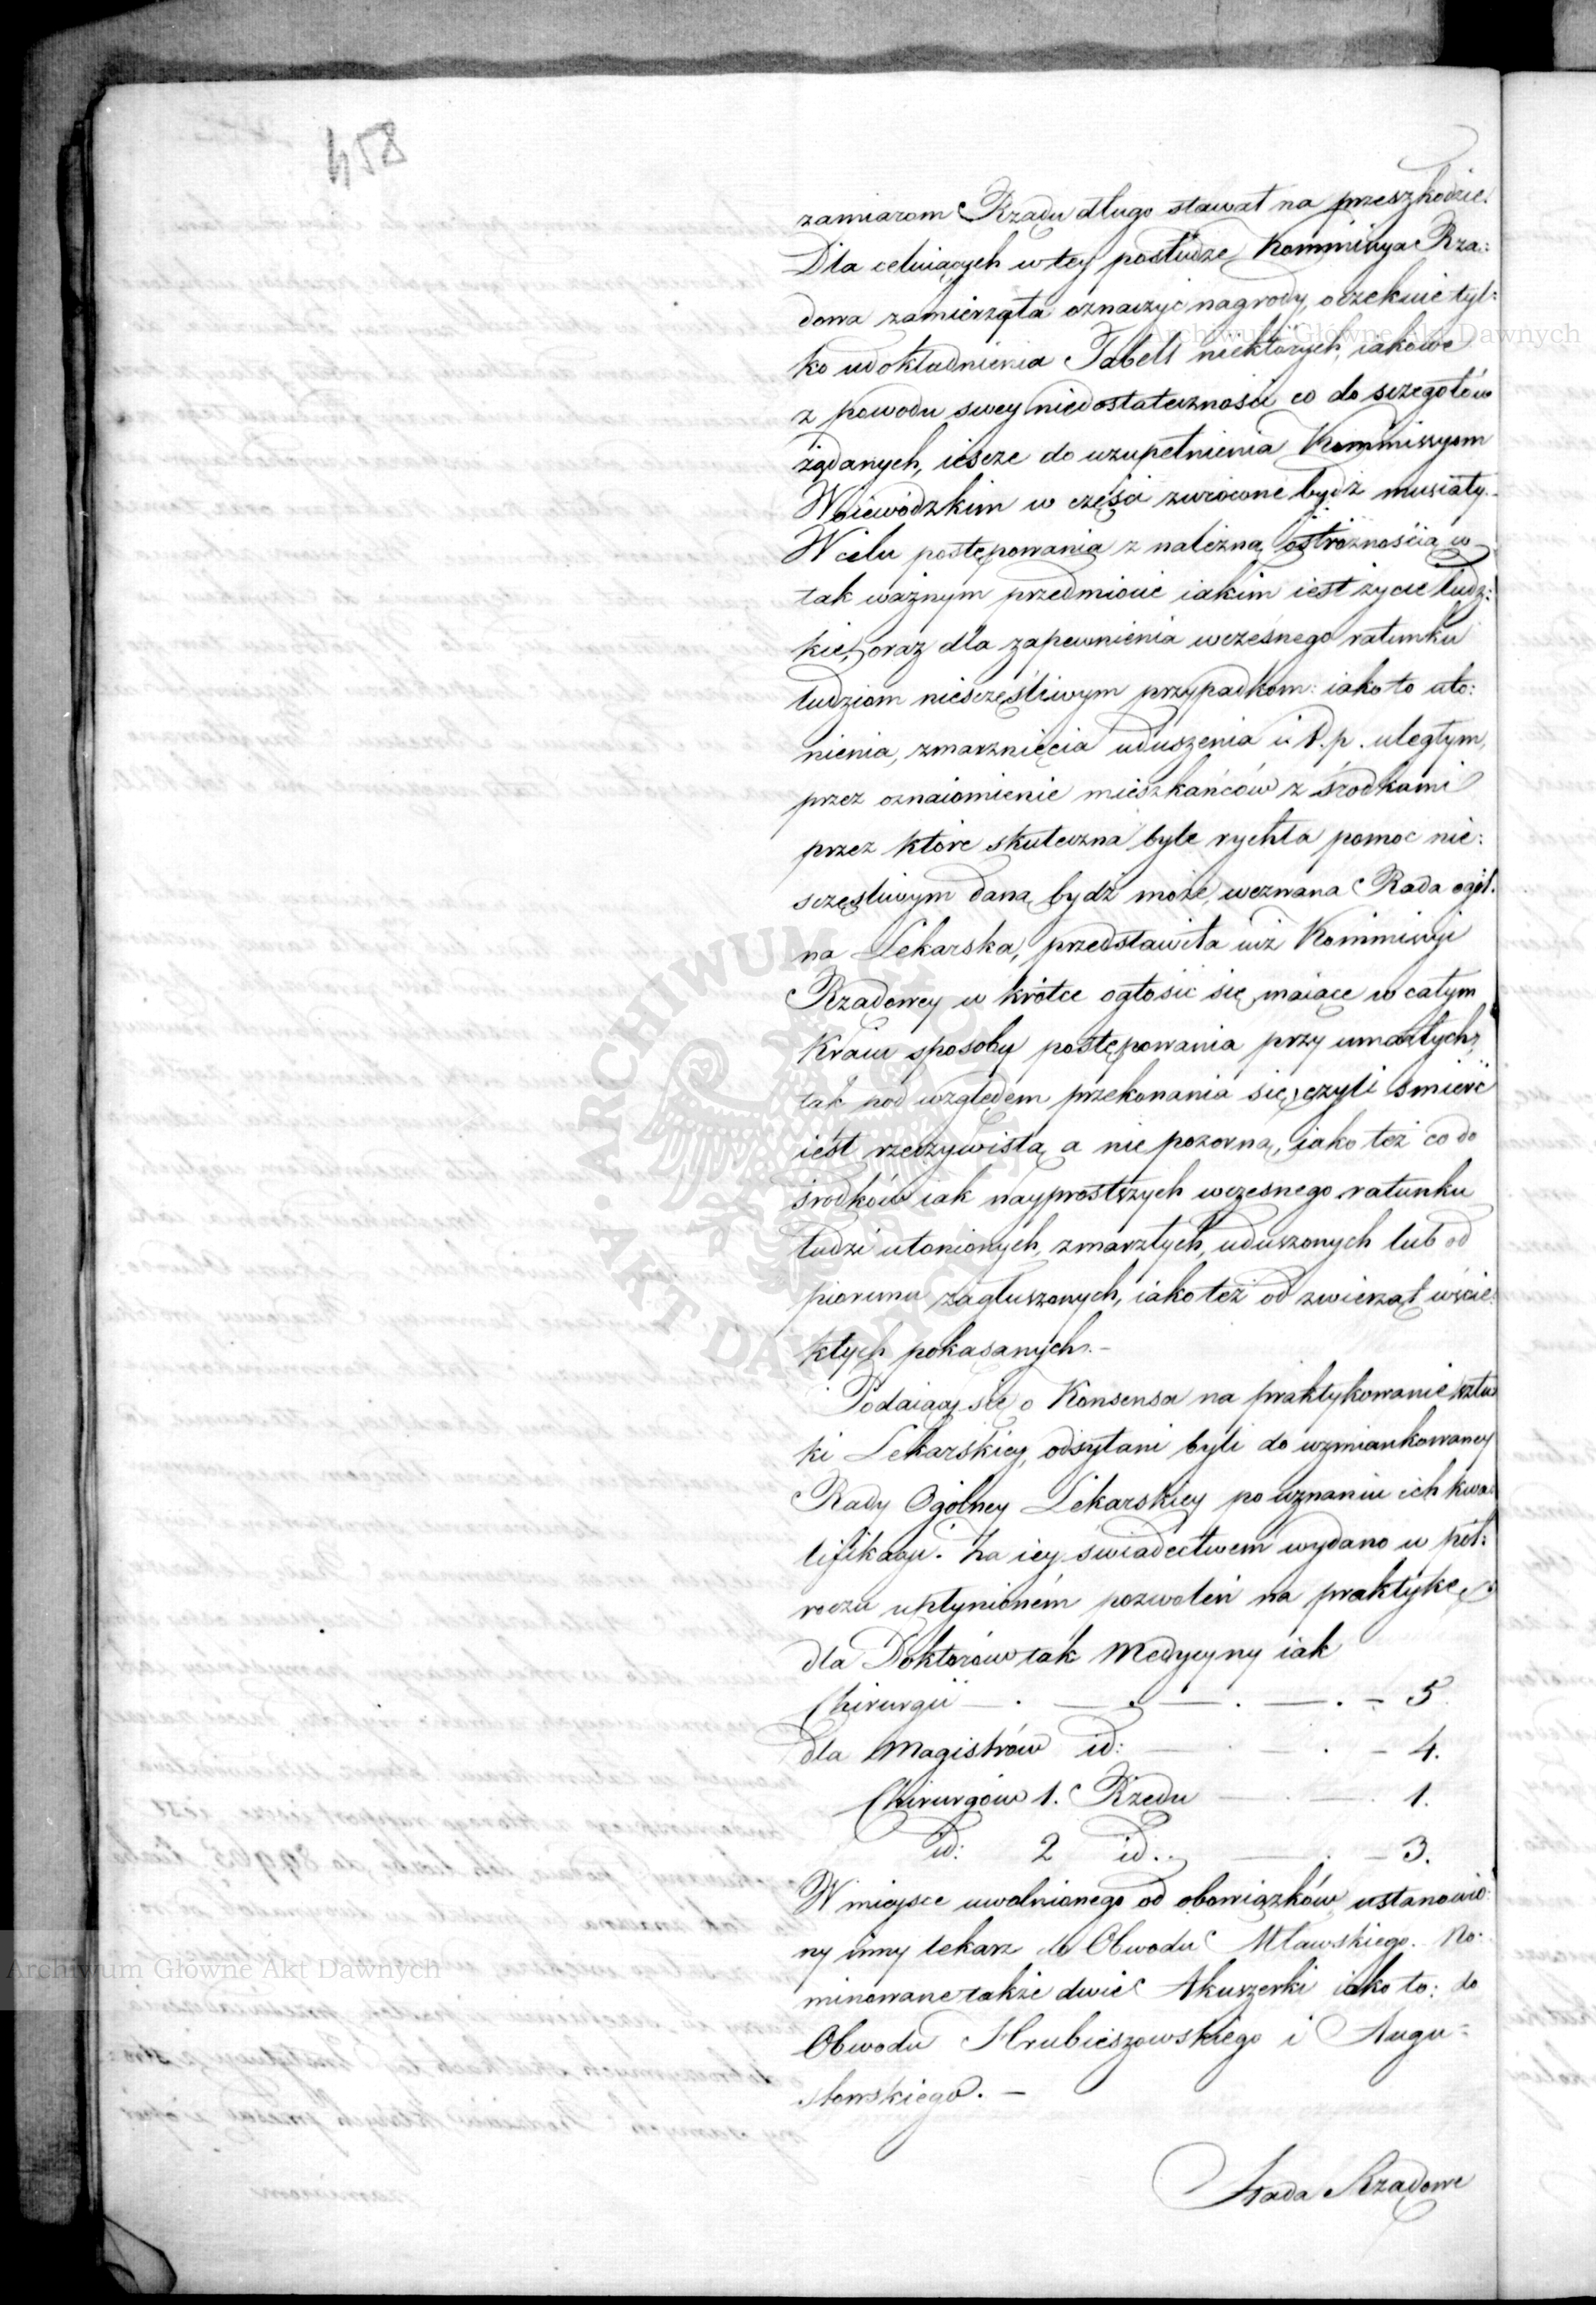 458
zamiarom Rządu długo stawał na przeszkodzie.
Dla celuiących w tey posłudze Kommissya Rzą:
dowa zamierzyła oznaczyć nagrody, oczekuie tyl:
ko udokładnienia Tabell niektórych, iakowe
z powodu swey niedostateczności co do sczegołów
żądanych, iescze do uzupełnienia Kommissyom
Woiewódzkim w części zwrócone bydź musiały.
W celu postępowania z należną ostrożnością w
tak ważnym przedmiocie iakim iest życie ludz:
kie, oraz dla zapewnienia wczesnego ratunku
ludziom niesczęśliwym przypadkom: iako to uto:
nienia, zmarznięcia uduszenia i t. p. uległym,
przez oznaiomienie mieszkańców z środkami
przez które skuteczna byle rychła pomoc nie:
sczęśliwym daną bydź może, wezwana Rada ogól:
na Lekarska, przedstawiła iuż Kommissyi
Rządowey w krótce ogłosić się maiące w całym
Kraiu sposoby postępowania przy umarłych,
tak pod względem przekonania się, czyli śmierć
iest rzeczywistą a nie pozorną, iako też co do
środków iak nayprostszych wczesnego ratunku
ludzi utonionych, zmarzłych, uduszonych lub od
piorunu zagłuszonych, iako też od zwierząt wście:
kłych pokąsanych.–
Podaiący się o Konsensa na praktykowanie sztu
ki Lekarskiey, odsyłani byli do wzmiankowaney
Rady Ogólney Lekarskiey po uznaniu ich kwa
lifikacyi. Za iey świadectwem wydano w pół:
roczu upłynioném pozwoleń na praktykę
dla Doktorów tak Medycyny iak
Chirurgii — . — . — . — . – 5.
dla Magistrów id: — . — . – 4.
Chirurgów 1. Rzędu — . — . 1.
id: 2 id.. — . – 3.
W mieysce uwolnionego od obowiązków ustanowio:
ny inny lekarz do Obwodu Mławskiego. No:
minowane także dwie Akuszerki iako to: do
Obwodu Hrubieszowskiego i Augu:
stowskiego. –
Rada Rządowe
Archiwum Główne Akt Dawnych
Archiwum Główne Akt Dawnych